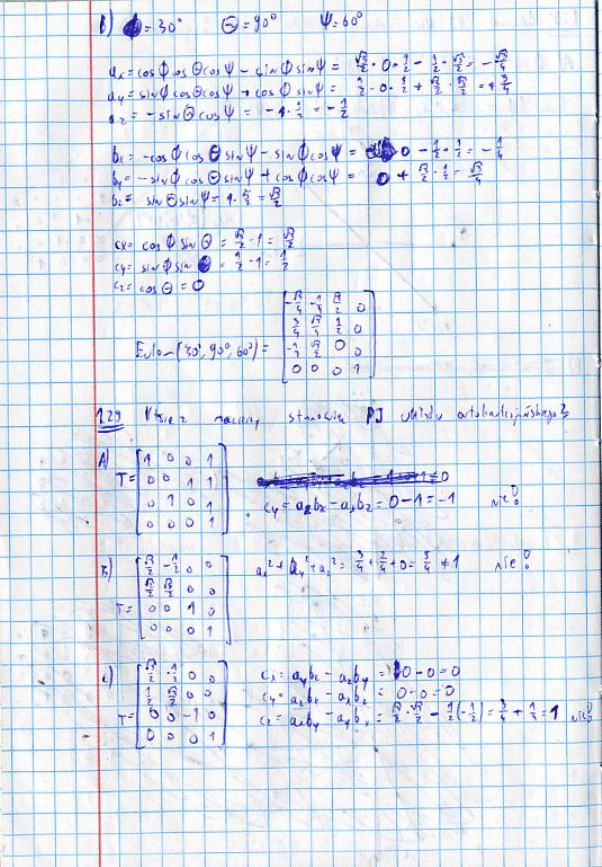 B) Φ = 30° Θ = 90° Ψ = 60°
ax = cosΦ cosΘ cosΨ - sinΦ sinΨ = √3/2 · 0 · 1/2 - 1/2 · √3/2 = -√3/4
ay = sinΦ cosΘ cosΨ + cosΦ sinΨ = 1/2 · 0 · 1/2 + √3/2 · √3/2 = +3/4
az = -sinΘ cosΨ = -1 · 1/2 = -1/2
bx = -cosΦ cosΘ sinΨ - sinΦ cosΨ = 0 - 1/2 · 1/2 = -1/4
by = -sinΦ cosΘ sinΨ + cosΦ cosΨ = 0 + √3/2 · 1/2 = √3/4
bz = sinΘ sinΨ = 1 · √3/2 = √3/2
cx = cosΦ sinΘ = √3/2 · 1 = √3/2
cy = sinΦ sinΘ = 1/2 · 1 = 1/2
cz = cosΘ = 0
-√3/4 -1/4 √3/2 0
3/4 √3/4 1/2 0
Euler (30°, 90°, 60°) =
-1/2 √3/2 0 0
0 0 0 1
1.29 macierzy stanowią PJ układu ortokartezjańskiego?
A)
1 0 0 1
T = 0 0 1 1
0 1 0 1
0 0 0 1
cy = azbx - axbz = 0 - 1 = -1 nie!
B)
√3/2 -1/2 0 0
√2/2 √3/2 0 0
T = 0 0 1 0
0 0 0 1
ax² + ay² + az² = 3/4 + 2/4 + 0 = 5/4 ≠ 1 nie!
C)
√3/2 -1/2 0 0
1/2 √3/2 0 0
T = 0 0 -1 0
0 0 0 1
cx = aybz - azby = 0 - 0 = 0
cy = azbx - axbz = 0 - 0 = 0
cz = axby - aybx = √3/2 · √3/2 - 1/2 (-1/2) = 3/4 + 1/4 = 1 nie!